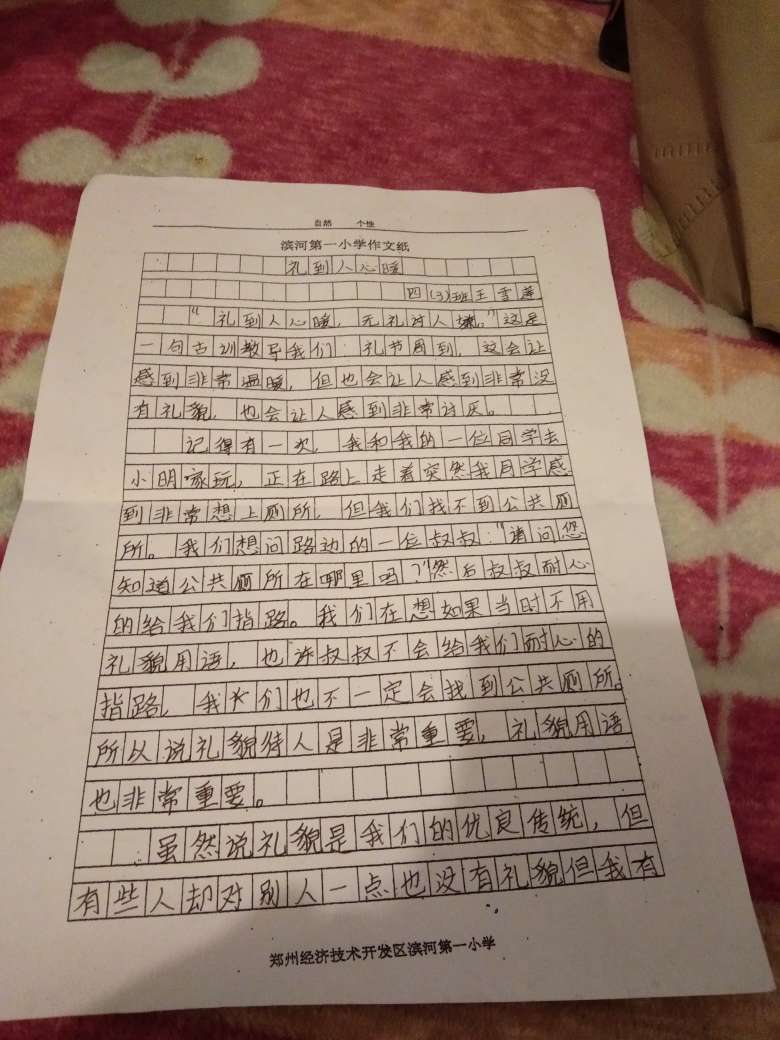 自然 个性
滨河第一小学作文纸
礼到人心暖
四(3)班王雪莲
“礼到人心暖，无礼讨人嫌。”这是
一句古训教导我们：礼节周到，这会让
感到非常温暖，但也会让人感到非常没
有礼貌，也会让人感到非常讨厌。
记得有一次，我和我的一位同学去
小明家玩，正在路上走着突然我同学感
到非常想上厕所，但我们找不到公共厕
所。我们想问路边的一位叔叔：“请问您
知道公共厕所在哪里吗？”然后叔叔耐心
的给我们指路。我们在想如果当时不用
礼貌用语，也许叔叔不会给我们耐心的
指路，我们也不一定会找到公共厕所。
所以说礼貌待人是非常重要，礼貌用语
也非常重要。
虽然说礼貌是我们的优良传统，但
有些人却对别人一点也没有礼貌但我有
郑州经济技术开发区滨河第一小学